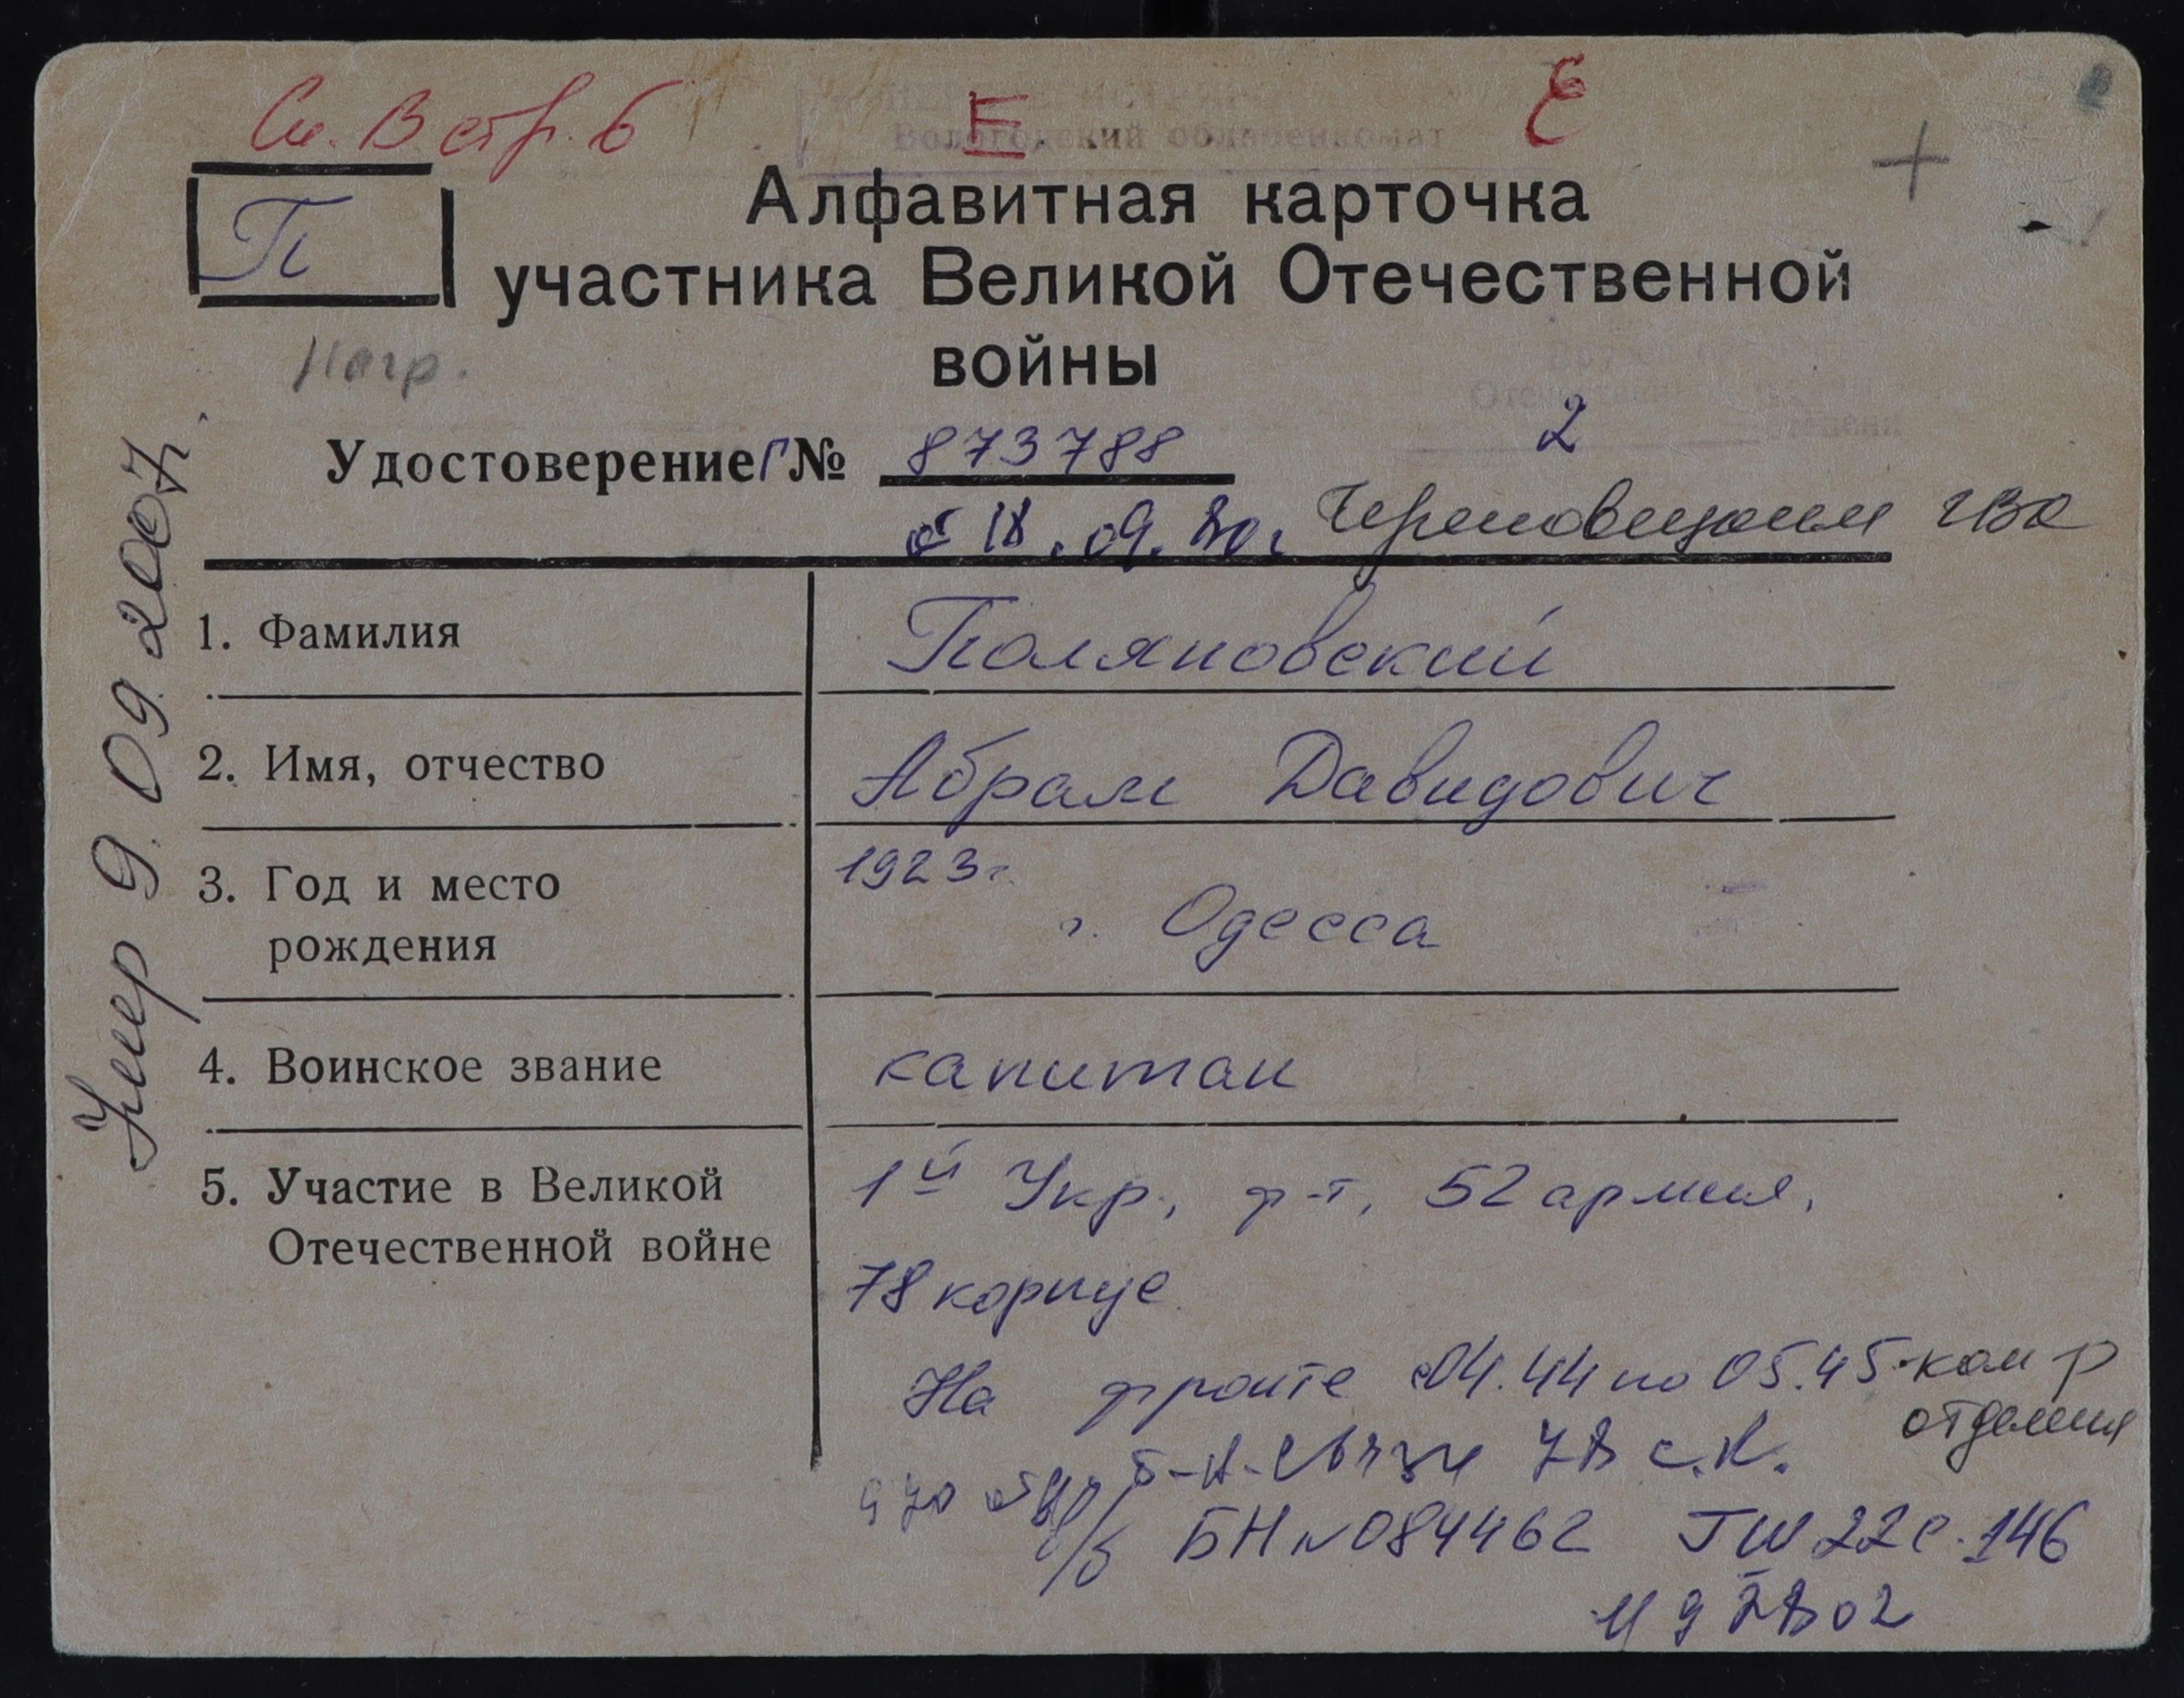 См. В стр. 6 Е Е
Вологодский облвоенкомат
П
Алфавитная карточка
участника Великой Отечественной
войны
Нагр.
Отечественной
степени
2
Удостоверение Г № 873788
от 18.09.80г. Череповецким ГВК
1. Фамилия Поляновский
2. Имя, отчество Абрам Давидович
3. Год и место рождения 1923г.
г. Одесса
4. Воинское звание капитан
5. Участие в Великой Отечественной войне 1й Укр. ф-т, 52 армия,
78 корпус
На фронте с 04.44 по 05.45 - ком р
отделения
970 б-н связи 78 с.к.
БН № 084462 22 с. 146
Умер 9.09.2007г.